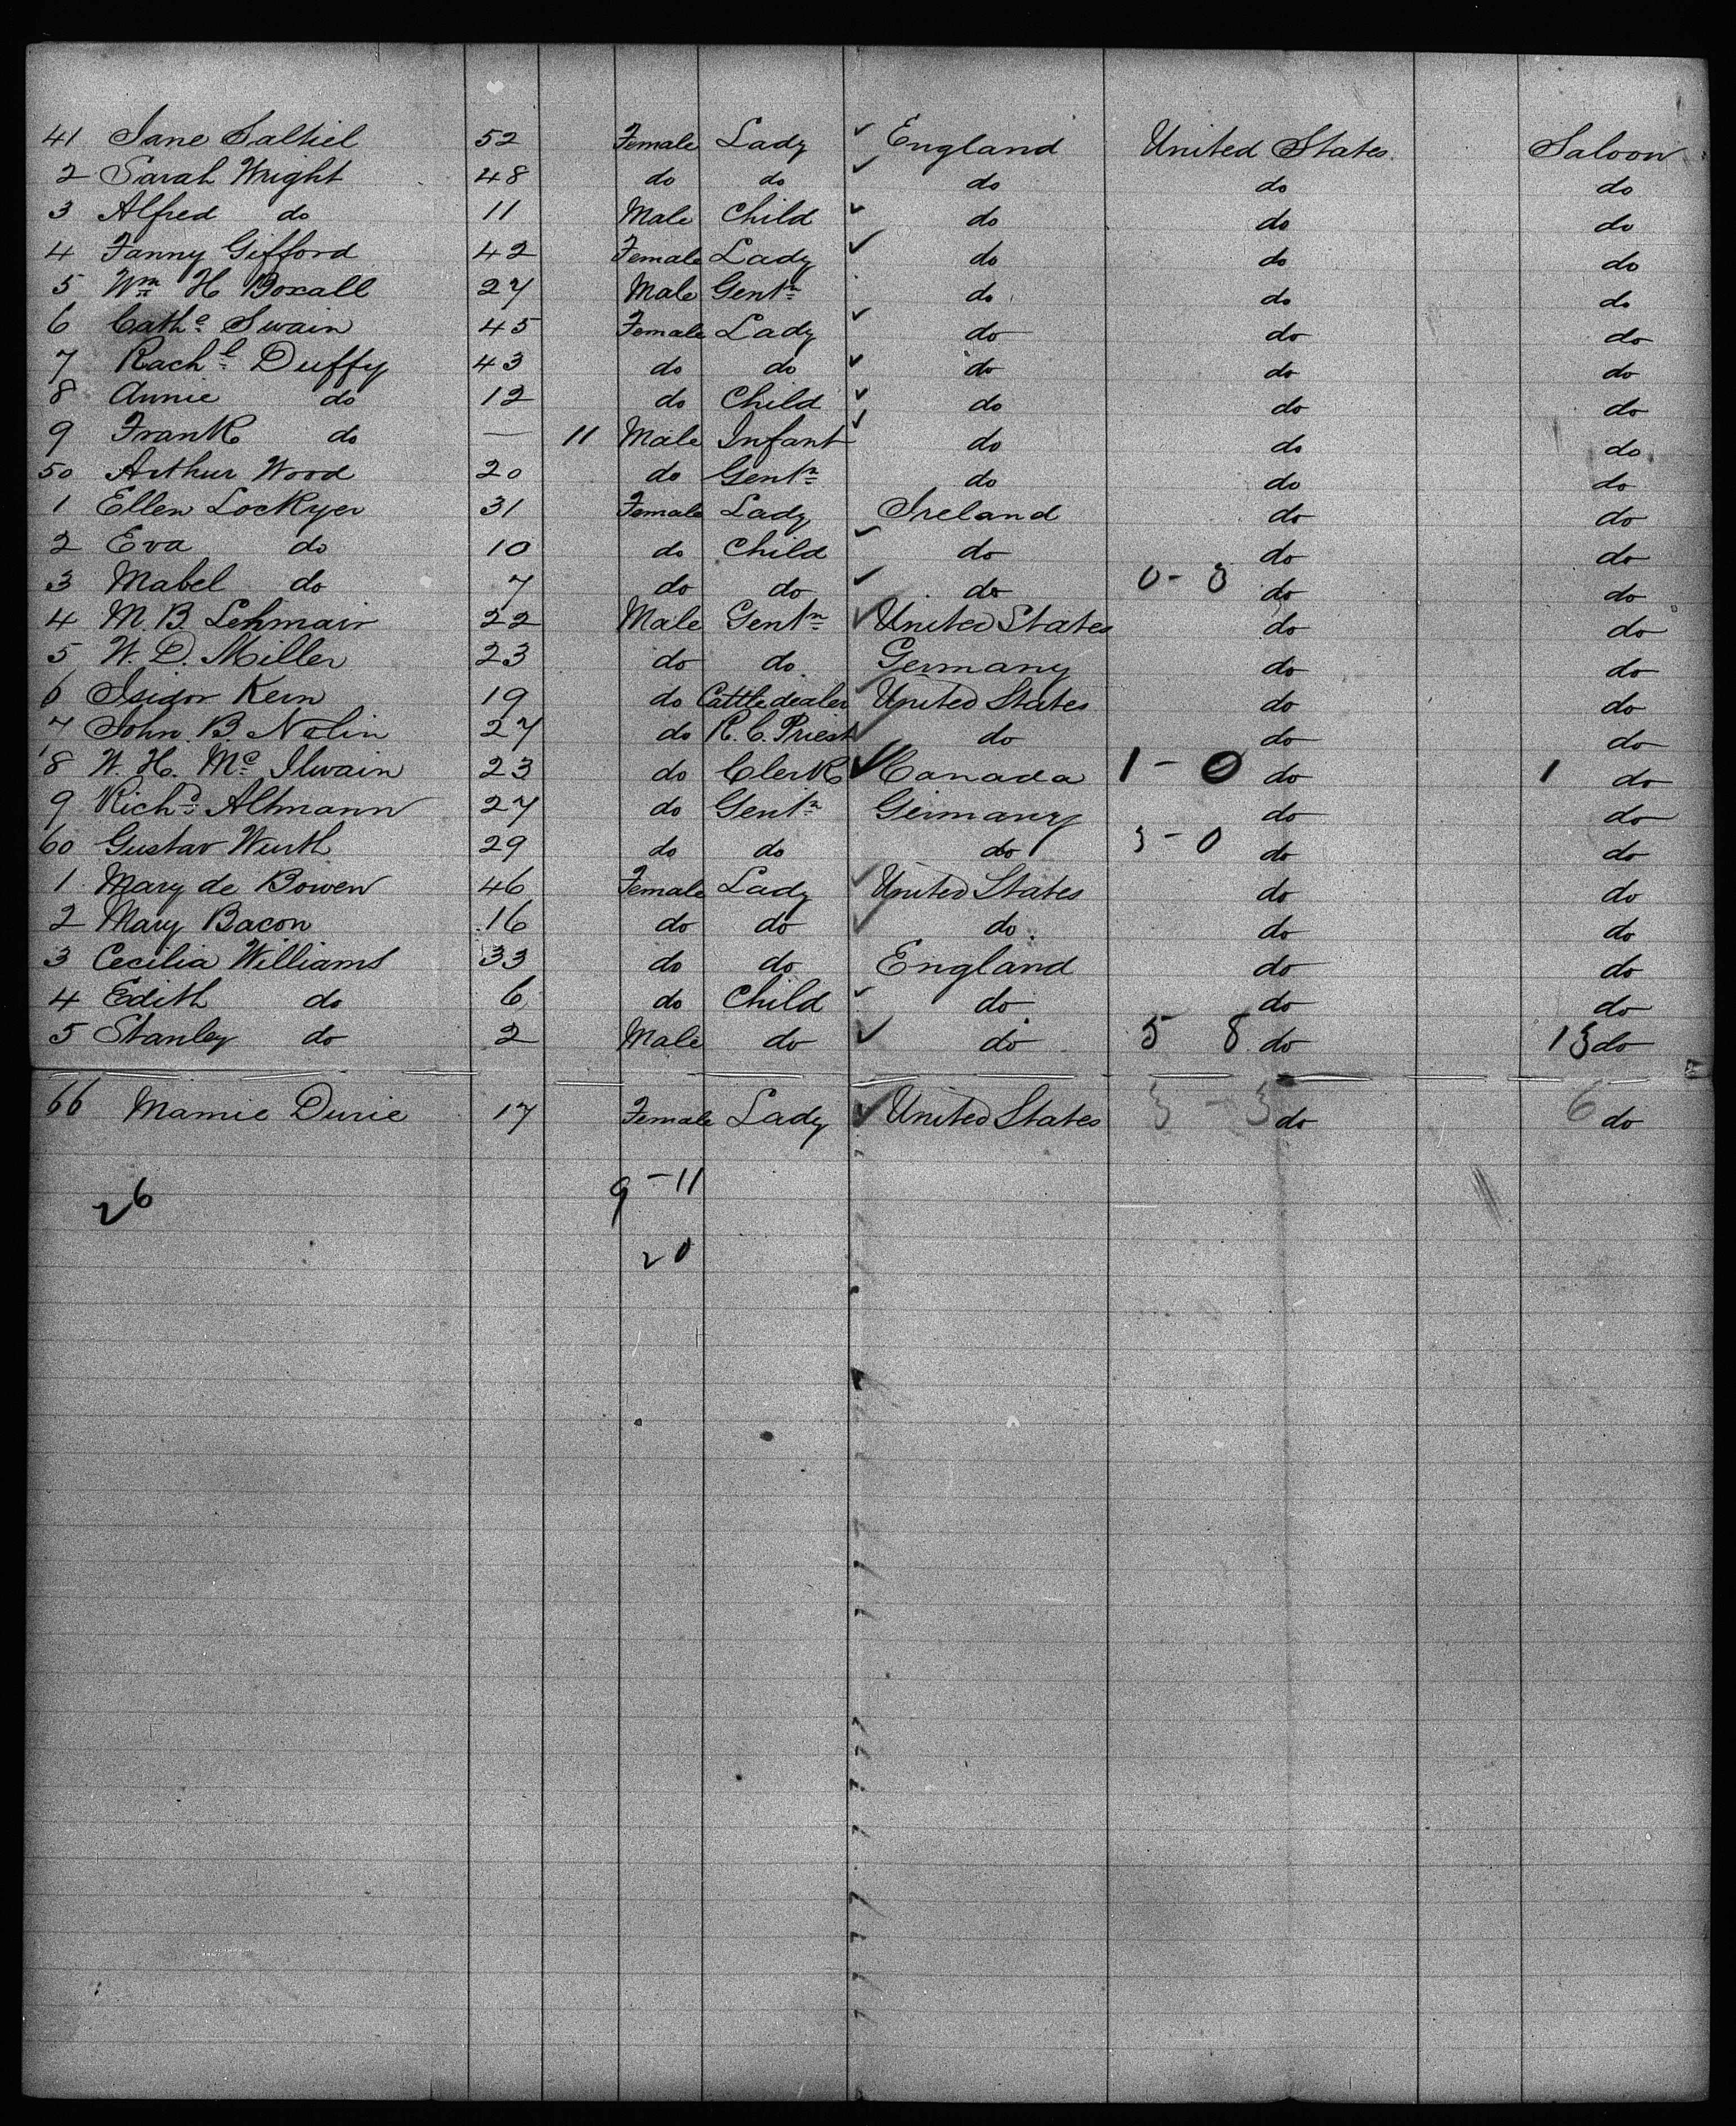 41 Jane Saltiel 52 Female Lady England United States Saloon
2 Sarah Wright 48 do do do do do
3 Alfred do 11 Male Child do do do
4 Fanny Gifford 42 Female Lady do do do
5 Wm H Boxall 27 Male Gentn do do do
6 Cathe Swain 45 Female Lady do do do
7 Rachl Duffy 43 do do do do do
8 Annie do 12 do Child do do do
9 Frank do — 11 Male Infant do do do
50 Arthur Wood 20 do Gentn do do do
1 Ellen Lockyer 31 Female Lady Ireland do do
2 Eva do 10 do Child do do do
3 Mabel do 7 do do do 0-3 do do
4 M. B. Lehmair 22 Male Gentn United States do do
5 W. D. Miller 23 do do Germany do do
6 Isidor Kern 19 do Cattle dealer United States do do
7 John B. Nolin 27 do R. C. Priest do do do
8 W. H. Mc Ilwain 23 do Clerk Canada 1-0 do 1 do
9 Richd Altmann 27 do Gentn Germany do do
60 Gustav Wurth 29 do do do 3-0 do do
1 Mary de Bowen 46 Female Lady United States do do
2 Mary Bacon 16 do do do do do
3 Cecilia Williams 33 do do England do do
4 Edith do 6 do Child do do do
5 Stanley do 2 Male do do 5 8 do 13 do
66 Mamie Durie 17 Female Lady United States 3-3 do 6 do
26 9-11
20